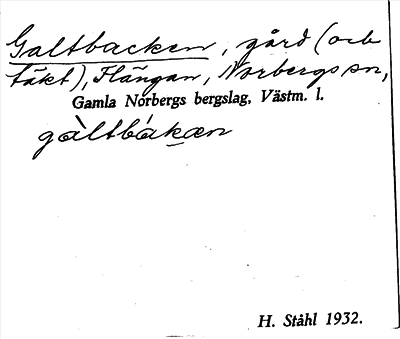 Galtbacken, gård (och
täkt), Flängan, Norbergs sn,
Gamla Norbergs bergslag, Västm. l.
gàltbákæn
H. Ståhl 1932.